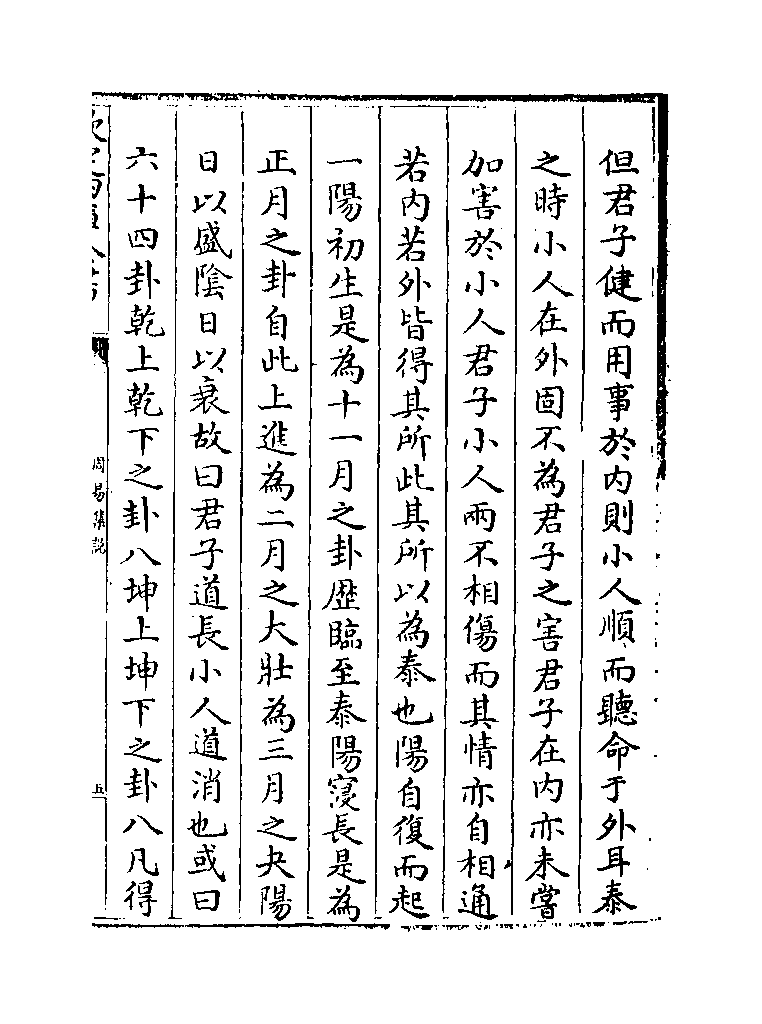 但君子健而用事於内則小人順而聽命于外耳泰
之時小人在外固不為君子之害君子在内亦未嘗
加害於小人君子小人兩不相傷而其情亦自相通
若内若外皆得其所此其所以為泰也陽自復而起
一陽初生是為十一月之卦歴臨至泰陽寖長是為
正月之卦自此上進為二月之大壯為三月之夬陽
日以盛陰日以衰故曰君子道長小人道消也或曰
六十四卦乾上乾下之卦八坤上坤下之卦八凡得
周易集說
五